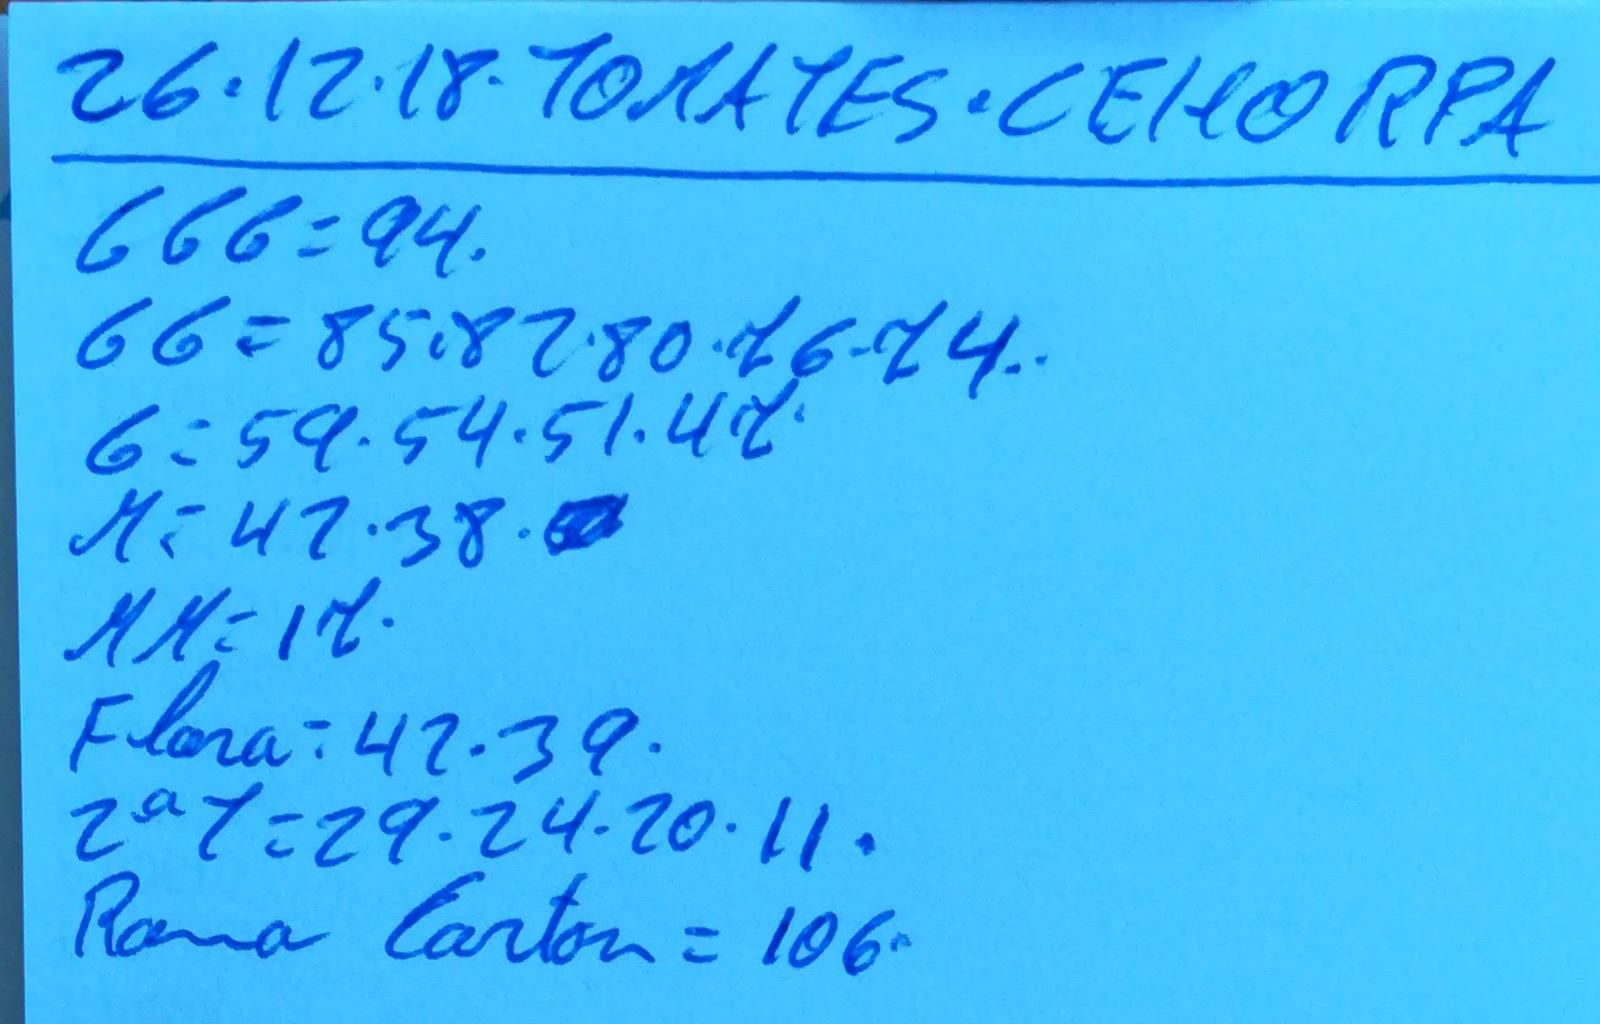 26.12.18. TOMATES. CEHORPA
GGG = 94.
GG = 85.82.80.76-74..
G = 59.54.51.47.
M = 42.38.
MM = 17.
Flora = 42.39.
2ª T = 29.24.20.11.
Rama Carton = 106.